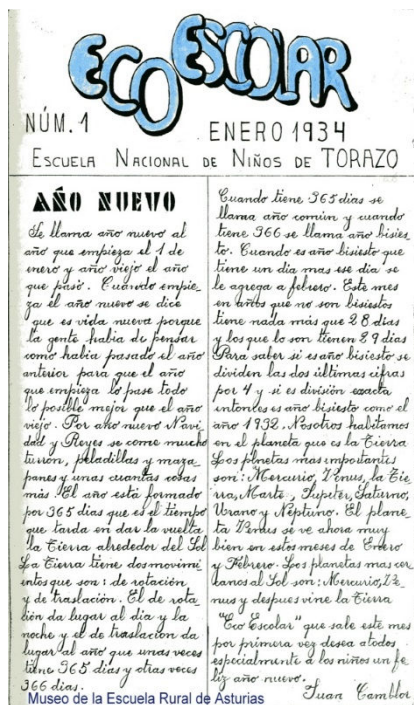 ECO ESCOLAR
NÚM. 1
ENERO 1934
ESCUELA NACIONAL DE NIÑOS DE TORAZO
AÑO NUEVO
Se llama año nuevo al
año que empieza el 1 de
enero y año viejo el año
que pasó. Cuando empie-
za el año nuevo se dice
que es vida nueva porque
la gente habia de pensar
como habia pasado el año
anterior para que el año
que empieza lo pase todo
lo posible mejor que el año
viejo. Por año nuevo Navi
dad y Reyes se come mucho
turrón, peladillas y maza
panes y unas cuantas cosas
más. El año está formado
por 365 dias que es el tiempo
que tarda en dar la vuelta
la Tierra alrededor del Sol
La Tierra tiene dos movimi
entos que son: de rotación
y de traslación. El de rota
ción da lugar al dia y la
noche y el de traslación da
lugar al año que unas veces
tiene 365 dias y otras veces
366 dias.
Cuando tiene 365 dias se
llama año común y cuando
tiene 366 se llama año bisies
to. Cuando es año bisiesto que
tiene un dia mas ese dia se
le agrega a febrero. Este mes
en años que no son bisiestos
tiene nada más que 28 dias
y los que lo son tienen 29 dias
Para saber si es año bisiesto se
dividen las dos últimas cifras
por 4 y si es división exacta
entonces es año bisiesto como el
año 1932. Nosotros habitamos
en el planeta que es la Tierra
Los planetas mas importantes
son: Mercurio, Venus, la Tie
rra, Marte, Jupiter, Saturno,
Urano y Neptuno. El plane
ta Venus se ve ahora muy
bien en estos meses de Enero
y Febrero. Los planetas mas cer
canos al Sol son: Mercurio, Ve
nus y despues vine la Tierra
"Eco Escolar" que sale este mes
por primera vez desea a todos
especialmente a los niños un fe
liz año nuevo.
Juan Camblor
Museo de la Escuela Rural de Asturias